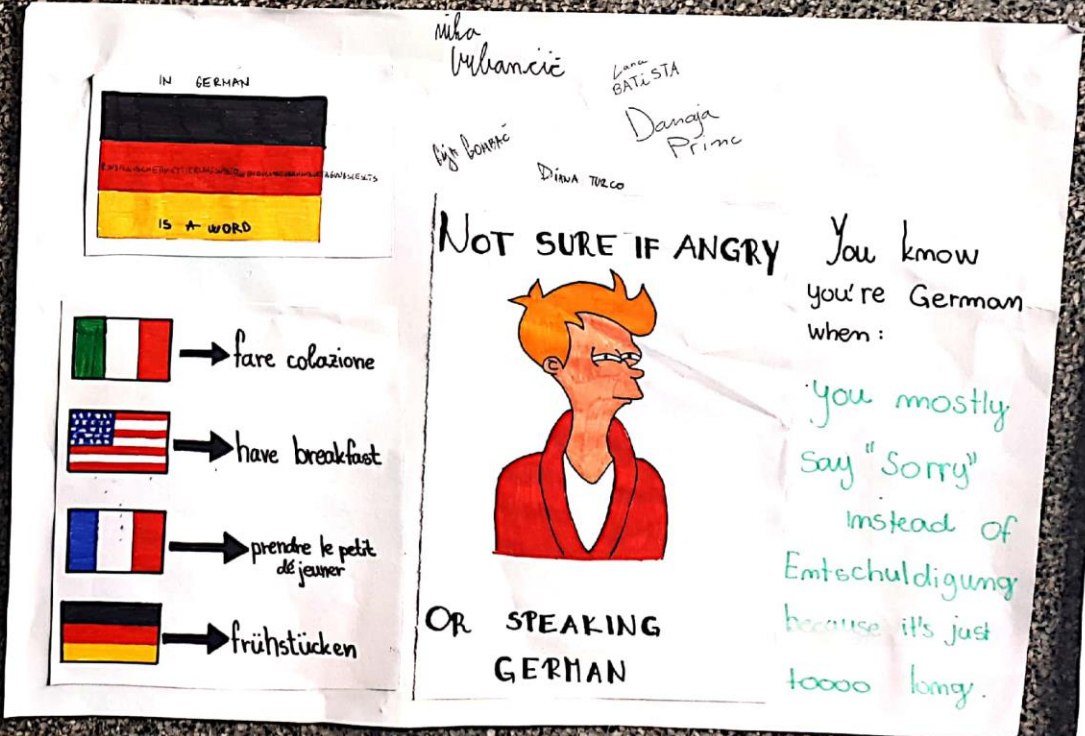 Vrbančič
Lana
BATiSTA
Danaja
Princ
DIANA TURCO
IN GERMAN
IS A WORD
fare colazione
have breakfast
prendre le petit
déjeuner
frühstücken
NOT SURE IF ANGRY
OR SPEAKING
GERMAN
You know
you're German
when:
you mostly
say "Sorry"
instead of
Entschuldigung
because it's just
toooo long.